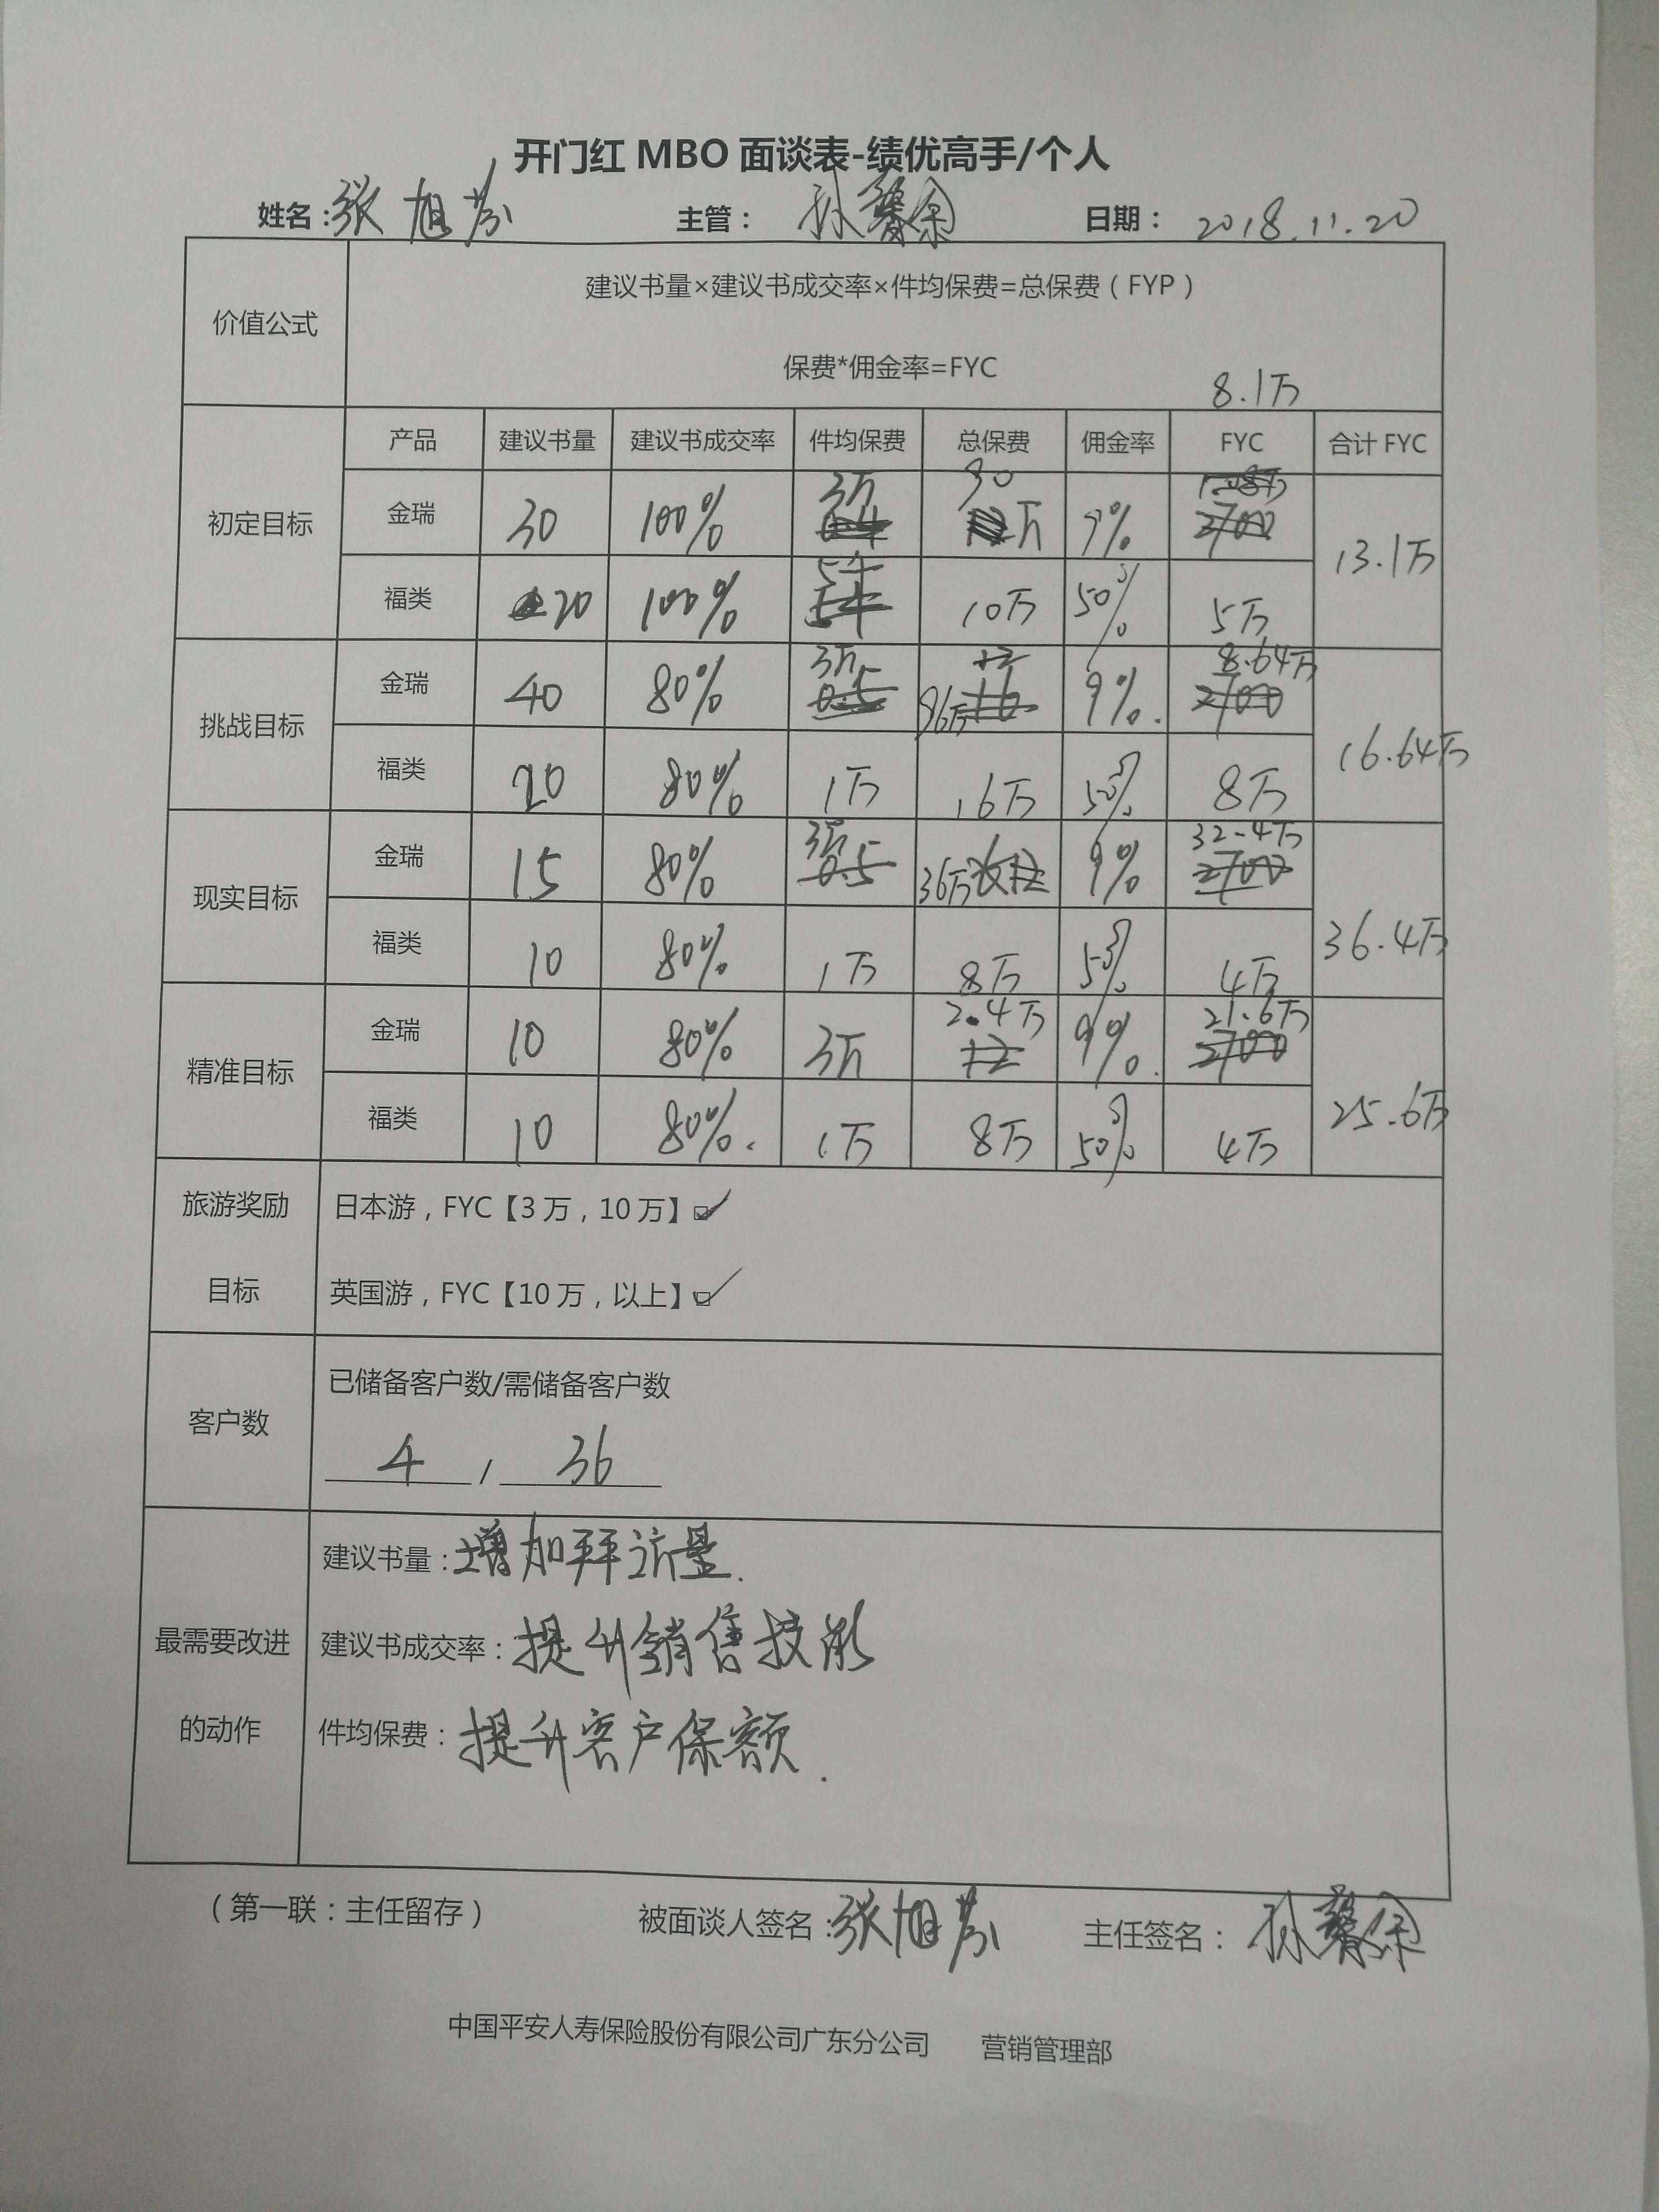 开门红 MBO 面谈表-绩优高手/个人
姓名：张旭芬 主管：孙 日期：2018.11.20
价值公式
建议书量×建议书成交率×件均保费=总保费（FYP）
保费*佣金率=FYC
8.1万
初定目标 产品 建议书量 建议书成交率 件均保费 总保费 佣金率 FYC 合计 FYC
金瑞 30 100% 3万 90万 9%
13.1万
福类 20 100% 5千 10万 50% 5万
挑战目标
金瑞 40 80% 3万 96万 9% 8.64万
16.64万
福类 20 80% 1万 16万 50% 8万
现实目标
金瑞 15 80% 3万 36万 9% 32.4万
36.4万
福类 10 80% 1万 8万 50% 4万
精准目标
金瑞 10 80% 3万 2.4万 9% 21.6万
25.6万
福类 10 80% 1万 8万 50% 4万
旅游奖励
目标
日本游，FYC【3万，10万】☑
英国游，FYC【10万，以上】☑
客户数
已储备客户数/需储备客户数
4 / 36
最需要改进
的动作
建议书量：增加拜访量.
建议书成交率：提升销售技能
件均保费：提升客户保额.
（第一联：主任留存） 被面谈人签名：张旭芬 主任签名：孙
中国平安人寿保险股份有限公司广东分公司 营销管理部